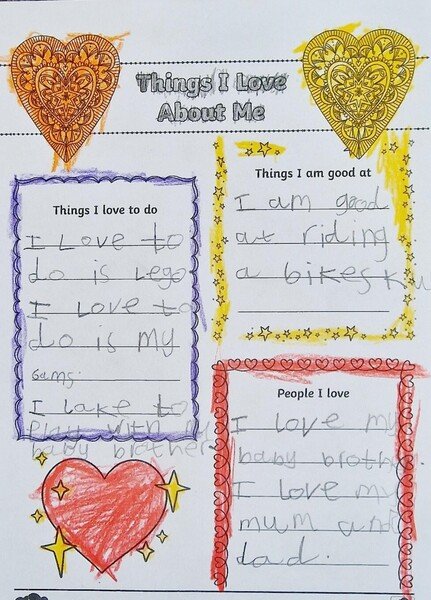 Things I Love
About Me
Things I love to do
I Love to
do is Lego
I Love to
do is my
Gams.
I Lake to
play with my
baby brother
Things I am good at
I am good
at riding
a bike
People I love
I love my
baby brother.
I love my
mum and
dad.